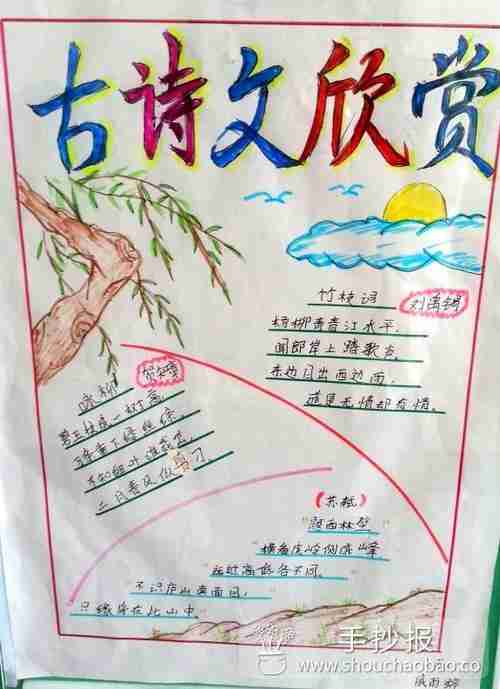 古诗文欣赏
竹枝词 刘禹锡
杨柳青青江水平,
闻郎岸上踏歌声。
东边日出西边雨,
道是无情却有情。
咏柳 贺知章
碧玉妆成一树高
万条垂下绿丝绦
不知细叶谁裁出
二月春风似剪刀
(苏轼)
"题西林壁
"横看成岭侧成峰
远近高低各不同。
不识庐山真面目,
只缘身在此山中。"
手抄报
www.shouchaobao.cn